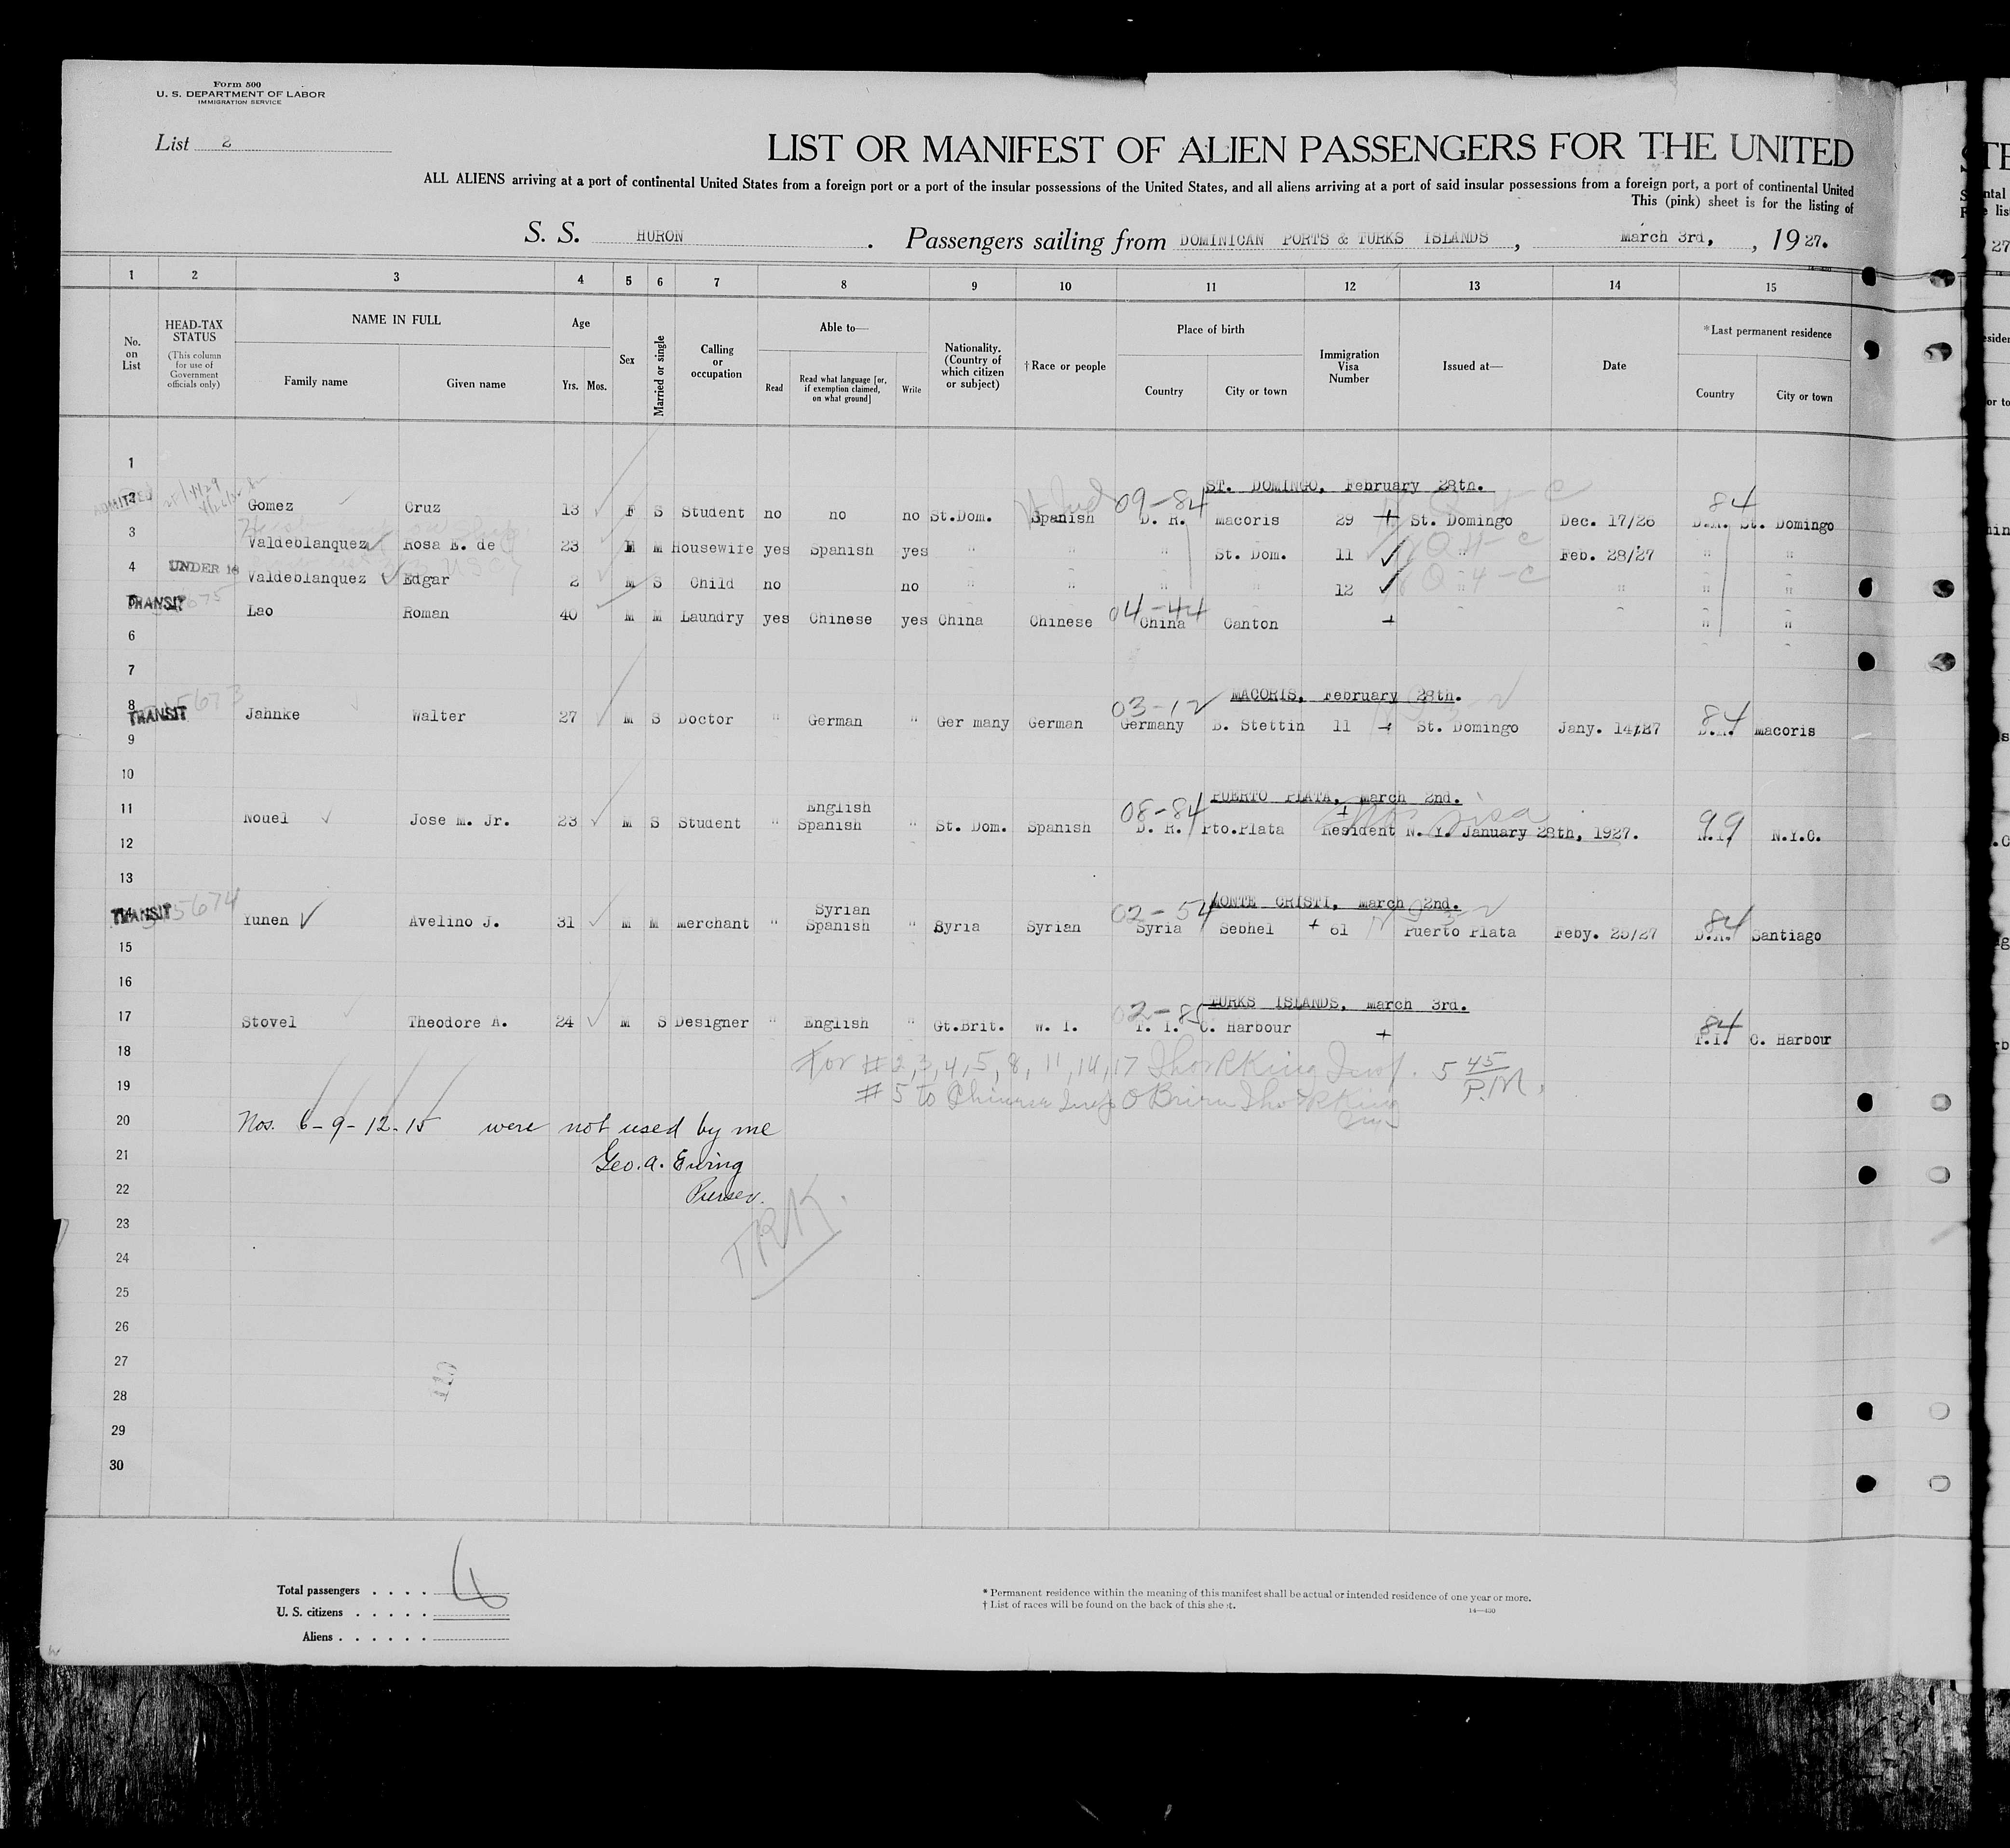 Form 500
U. S. DEPARTMENT OF LABOR
IMMIGRATION SERVICE
List 2
LIST OR MANIFEST OF ALIEN PASSENGERS FOR THE UNITED
ALL ALIENS arriving at a port of continental United States from a foreign port or a port of the insular possessions of the United States, and all aliens arriving at a port of said insular possessions from a foreign port, a port of continental United
This (pink) sheet is for the listing of
S. S. HURON . Passengers sailing from DOMINICAN PORTS & TURKS ISLANDS , March 3rd, , 1927.
1 2 3 4 5 6 7 8 9 10 11 12 13 14 15
No. on List
HEAD-TAX STATUS
(This column for use of Government officials only)
NAME IN FULL
Family name Given name
Age
Yrs. Mos.
Sex
Married or single
Calling or occupation
Able to—
Read
Read what language [or, if exemption claimed, on what ground]
Write
Nationality. (Country of which citizen or subject)
† Race or people
Place of birth
Country City or town
Immigration Visa Number
Issued at—
Date
*Last permanent residence
Country City or town
1
ST. DOMINGO, February 28th.
ADMITTED 2 Gomez Cruz 13 F S Student no no no St.Dom. Spanish 09-84 D. R. Macoris 29 + St. Domingo Dec. 17/26 84 D.R. St. Domingo
3 Valdeblanquez Rosa E. de 23 M Housewife yes Spanish yes " " " St. Dom. 11 " Feb. 28/27 " "
4 UNDER 16 Valdeblanquez Edgar 2 M S Child no no " " " " 12 " " " "
TRANSIT 5 Lao Roman 40 M M Laundry yes Chinese yes China Chinese 04-44 China Canton + " "
6
7
MACORIS, February 28th.
8 TRANSIT Jahnke Walter 27 M S Doctor " German " Ger many German 03-12 Germany B. Stettin 11 + St. Domingo Jany. 14/27 84 D.R. Macoris
9
10
PUERTO PLATA, March 2nd.
11 Nouel Jose M. Jr. 23 M S Student " English Spanish " St. Dom. Spanish 08-84 D. R. Pto.Plata Resident N. Y. January 28th, 1927. 99 N.Y. N.Y.C.
12
13
MONTE CRISTI, March 2nd.
TRANSIT 14 Yunen Avelino J. 31 M M Merchant " Syrian Spanish " Syria Syrian 02-54 Syria Sebhel + 61 Puerto Plata Feby. 25/27 84 D.R. Santiago
15
16
TURKS ISLANDS, March 3rd.
17 Stovel Theodore A. 24 M S Designer " English " Gt.Brit. W. I. 02-85 T. I. C. Harbour + 84 T.I. C. Harbour
18 For # 2, 3, 4, 5, 8, 11, 14, 17 Thos R King Insp. 5 45 P.M.
19 # 5 to Chinese Insp O Brien Thos R King
20 Nos. 6-9-12-15 were not used by me
21 Geo. A. Ewing
22 Purser.
TRK.
23
24
25
26
27
110
28
29
30
Total passengers . . . .
U. S. citizens . . . . .
Aliens . . . . . .
* Permanent residence within the meaning of this manifest shall be actual or intended residence of one year or more.
† List of races will be found on the back of this sheet.
14—430